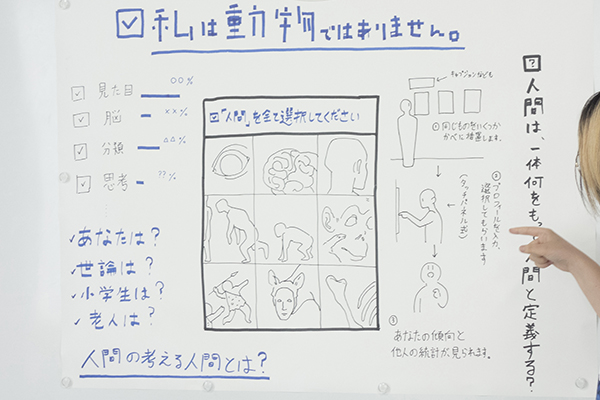 私は動物ではありません。
見た目 ○○%
脳 ××%
分類 △△%
思考 ??%
あなたは?
世論は?
小学生は?
老人は?
人間の考える人間とは?
「人間」を全て選択してください
キャプションなども
① 同じものをいくつか
かべに設置します。
② プロフィールを入力、
選択してもらいます
(タッチパネル式)
③
あなたの傾向と
他人の統計が見られます。
? 人間は、一体何をもっ 人間と定義する?